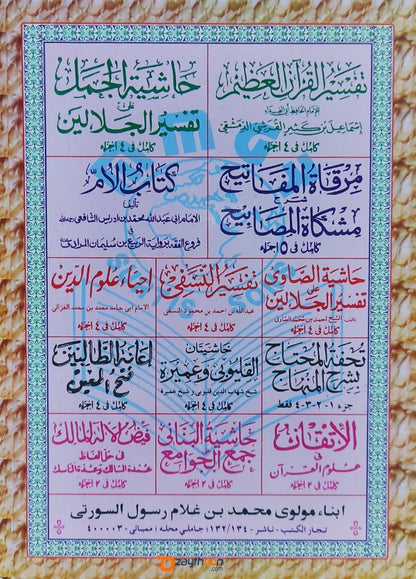 تفسير القرآن العظيم
للإمام الحافظ أبي الفداء
إسماعيل بن كثير القرشي الدمشقي
كامل في ٤ اجزاء
حاشية الجمل
على
تفسير الجلالين
كامل في ٤ اجزاء
مرقاة المفاتيح
شرح
مشكاة المصابيح
كامل في ٥ اجزاء
كتاب الأم
تأليف
الامام ابي عبدالله محمد بن ادريس الشافعي
فروع الفقه برواية الربيع بن سليمان المرادي
حاشية الصاوي
على
تفسير الجلالين
تأليف الشيخ احمد بن محمد الصاوي
كامل في ٤ اجزاء
تفسير النسفي
عبدالله بن احمد بن محمود النسفي
كامل في ٤ اجزاء
إحياء علوم الدين
الامام ابي حامد محمد بن محمد الغزالي
كامل في ٤ اجزاء
تحفة المحتاج
بشرح المنهاج
جزء ١-٢-٣-٤ فقط
حاشيتان
القليوبي وعميرة
شيخ شهاب الدين قليوبي وشيخ عميرة
كامل في ٤ اجزاء
إعانة الطالبين
فتح المعين
كامل في ٤ اجزاء
الإتقان
في
علوم القرآن
كامل في ٢ اجزاء
حاشية البناني
جمع الجوامع
كامل في ٢ اجزاء
فيض الاله المالك
في حل الفاظ
عمدة السالك وعدة الناسك
كامل في ٢ اجزاء
ابناء مولوي محمد بن غلام رسول السورتي
تجار الكتب - ناشر - ١٣٢/١٣٤: جاملي محله: ممبائي - ٤٠٠٠٠٣
zaythoon
.com